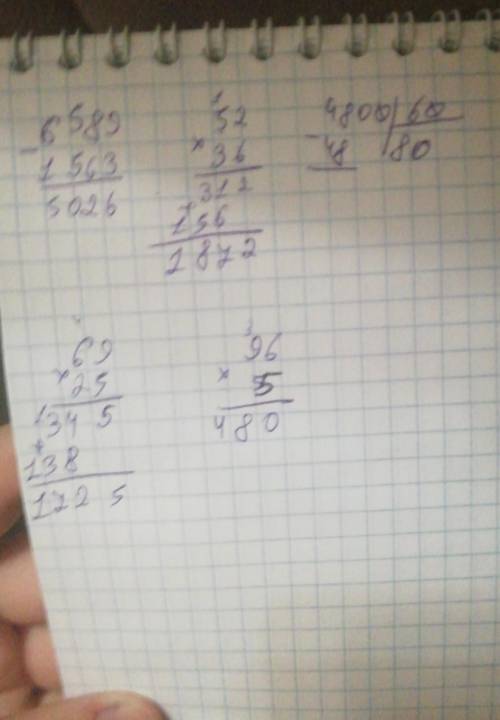 6589
- 1563
5026
1
52
× 36
312
+
156
1872
4800 | 60
- 48 | 80
69
× 25
1
345
+
138
1725
3
96
× 5
480